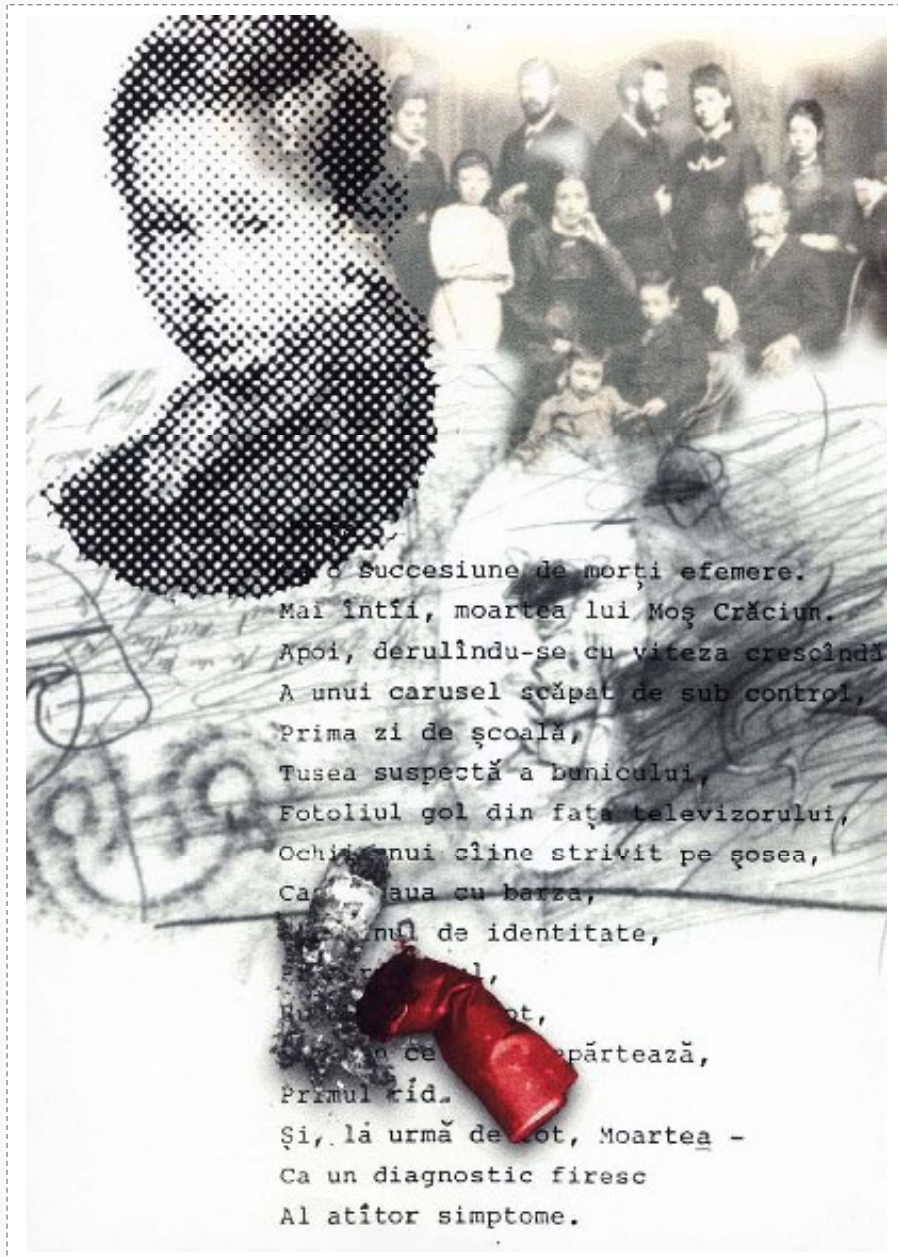 o succesiune de morţi efemere.
Mai întîi, moartea lui Moş Crăciun.
Apoi, derulîndu-se cu viteza crescîndă
A unui carusel scăpat de sub control,
Prima zi de şcoală,
Tusea suspectă a bunicului,
Fotoliul gol din faţa televizorului,
Ochii unui cîine strivit pe şosea,
cu barza,
de identitate,
Primul rid.
Şi, la urmă de tot, Moartea -
Ca un diagnostic firesc
Al atîtor simptome.